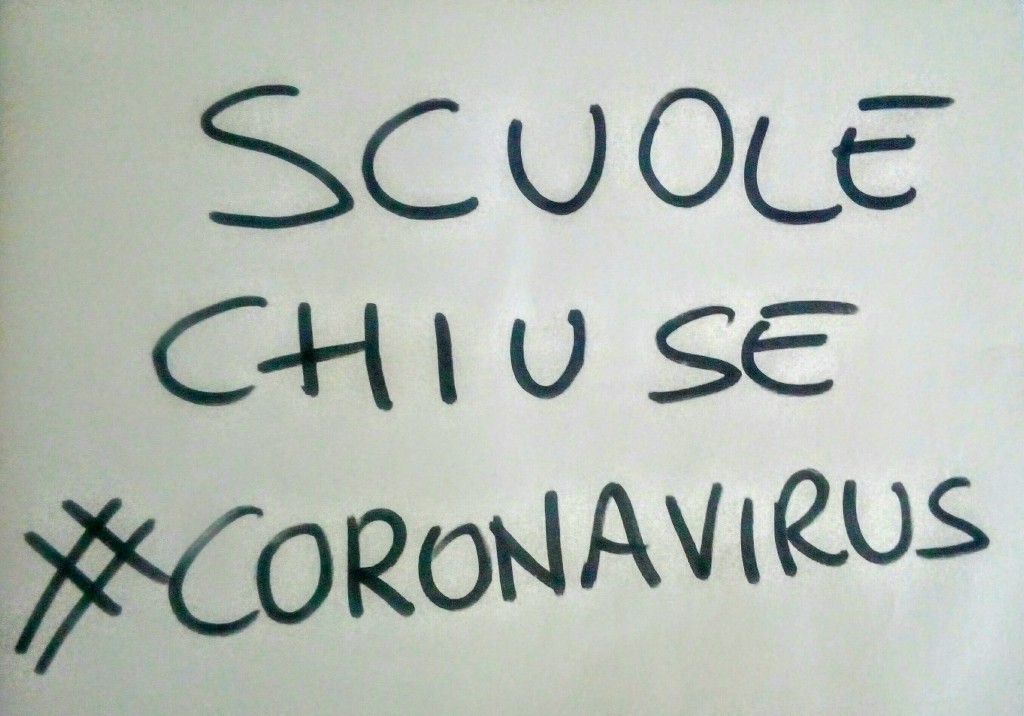 SCUOLE
CHIUSE
#CORONAVIRUS